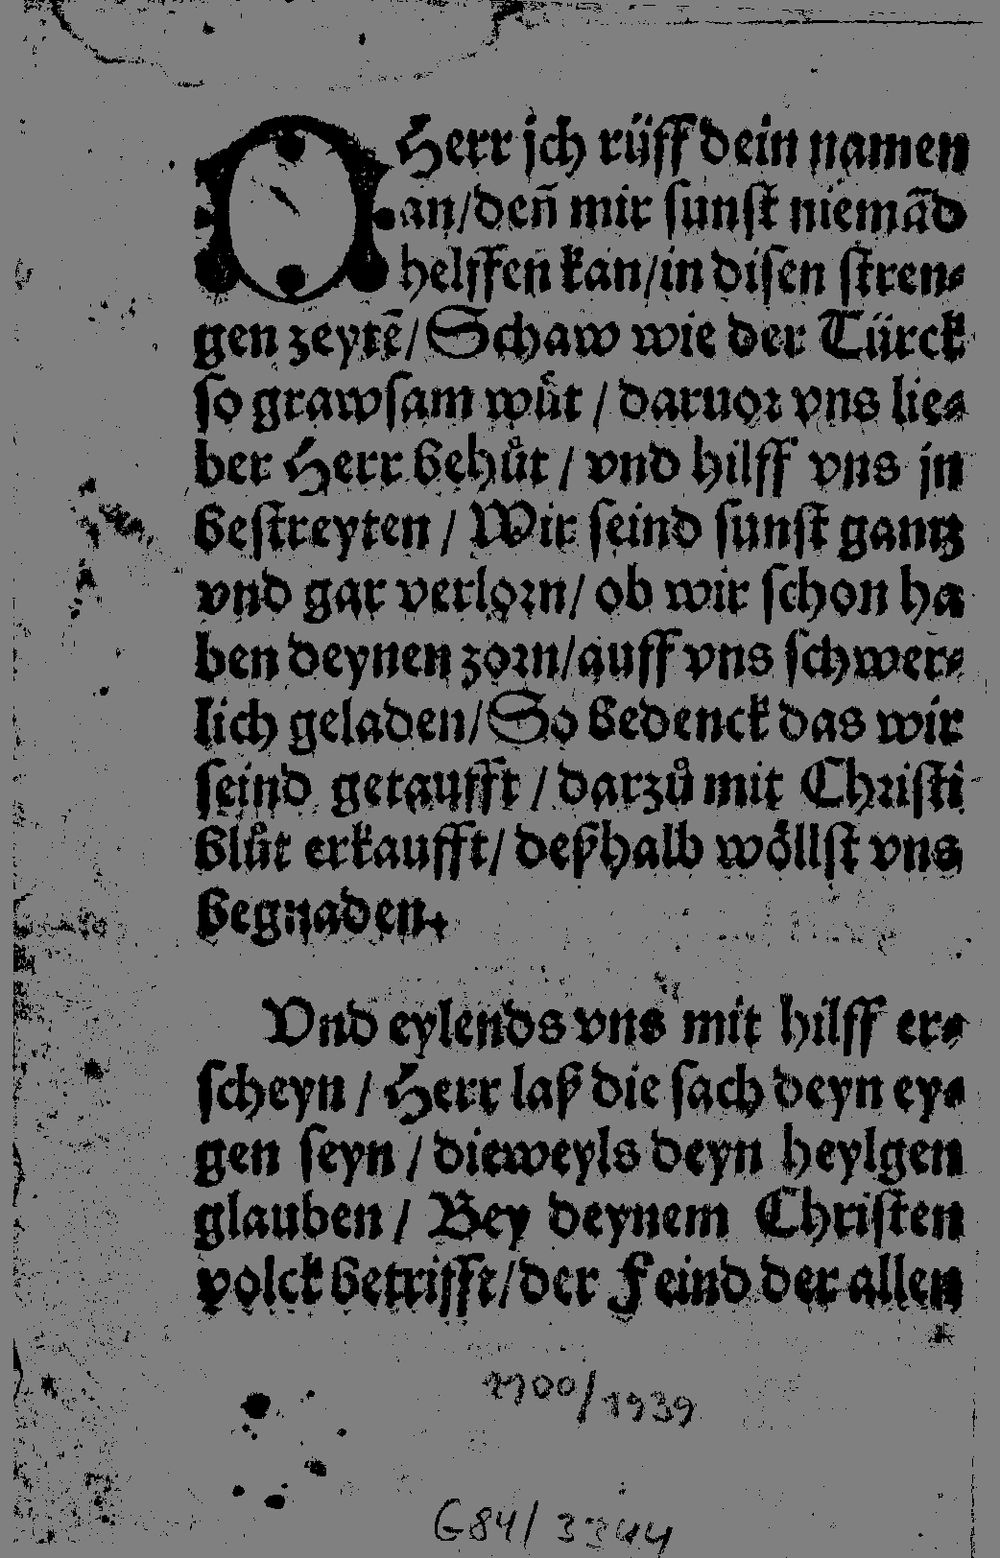 O Herr jch rüff dein namen
an/deñ mir sunst niemãd
helffen kan/in disen stren-
gen zeytẽ/Schaw wie der Türck
so grawsam wuͤt / daruor vns lie-
ber Herr behuͤt / vnd hilff vns jn
bestreyten / Wir seind sunst gantz
vnd gar verlorn/ ob wir schon ha
ben deynen zorn/auff vns schwer-
lich geladen/So bedenck das wir
seind getaufft / darzuͦ mit Christi
bluͦt erkaufft/ deßhalb woͤllst vns
begnaden.
Vnd eylends vns mit hilff er-
scheyn / Herr laß die sach deyn ey-
gen seyn / dieweyls deyn heylgen
glauben / Bey deynem Christen
volck betrifft/der Feind der allen
/1939
G84/ 3344